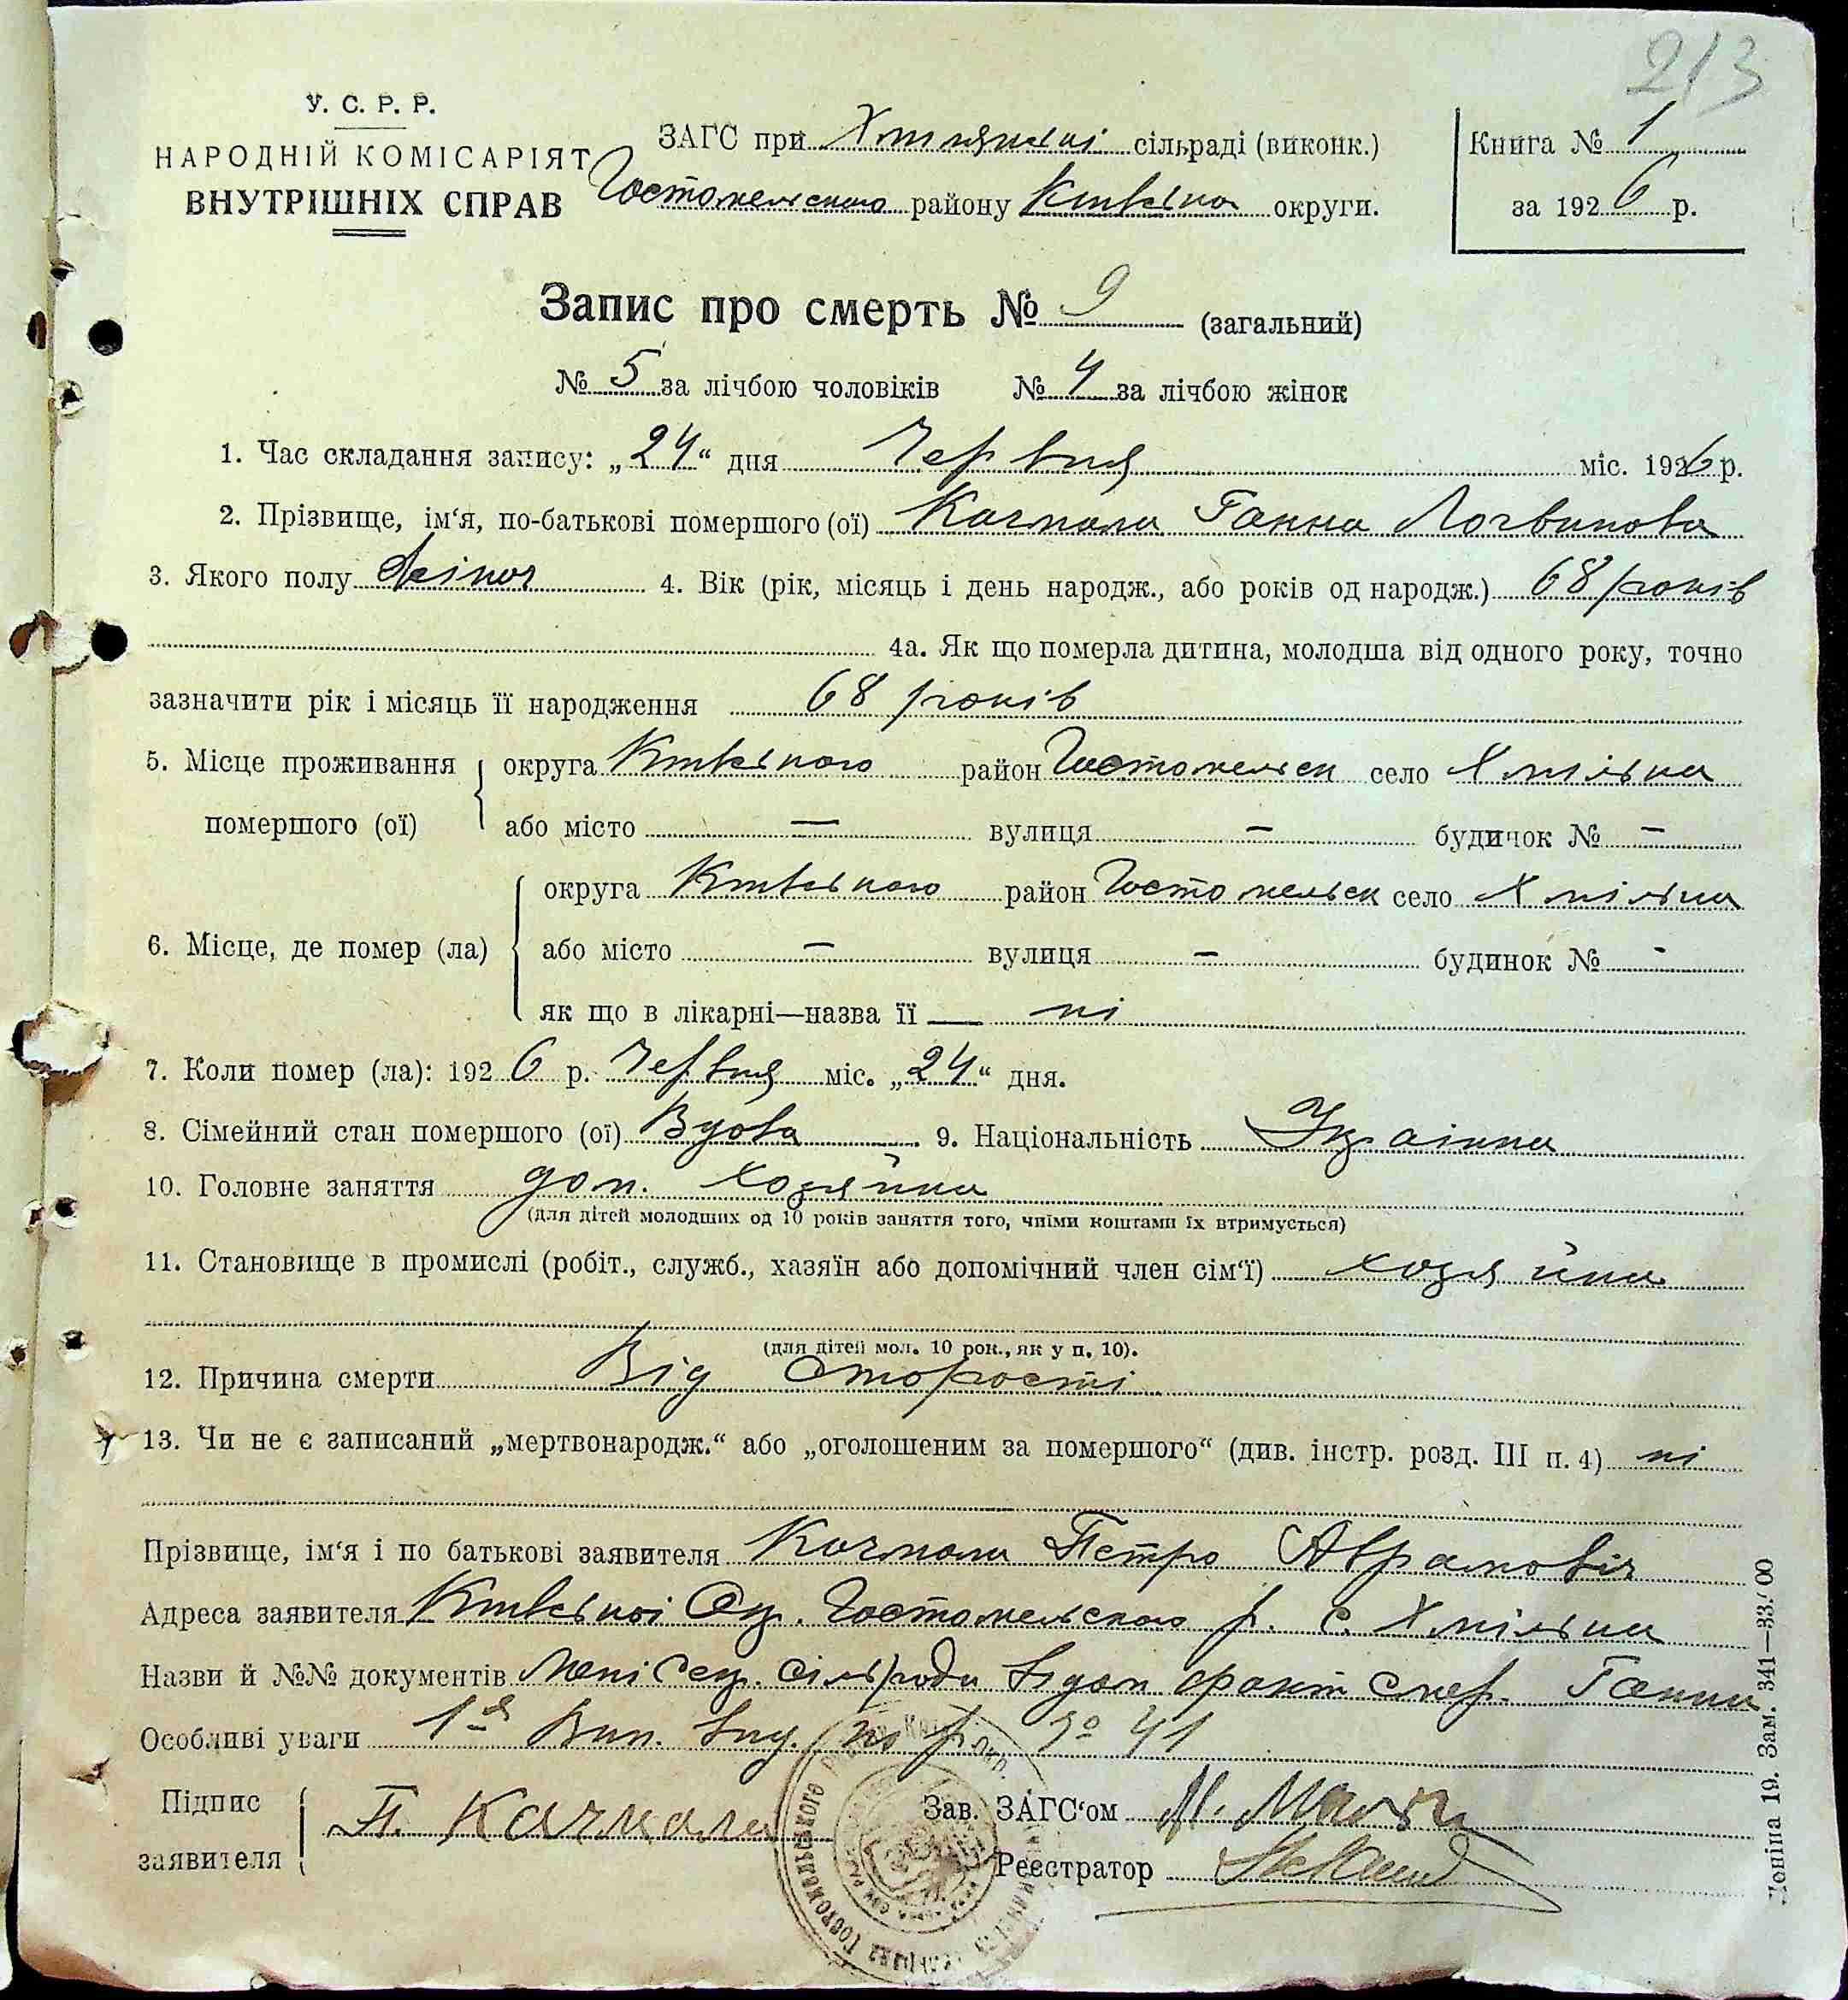 213
У. С. Р. Р.
НАРОДНІЙ КОМІСАРІЯТ
ВНУТРІШНІХ СПРАВ
ЗАГС при сільраді (виконк.)
Гостомельского району Київська округи.
Книга № 1
за 1926 р.
Запис про смерть № 9 (загальний)
№ 5 за лічбою чоловіків № 4 за лічбою жінок
1. Час складання запису: „24“ дня Червня міс. 1926 р.
2. Прізвище, ім‘я, по-батькові помершого (ої) Качмала Ганна Логвинова
3. Якого полу жіноч 4. Вік (рік, місяць і день народж., або років од народж.) 68 років
4а. Як що померла дитина, молодша від одного року, точно
зазначити рік і місяць її народження 68 років
5. Місце проживання помершого (ої) округа Київського район Гостомельск село Хмільна
або місто — вулиця — будинок № —
6. Місце, де помер (ла) округа Київського район Гостомельск село Хмільна
або місто — вулиця — будинок № -
як що в лікарні—назва її — ні
7. Коли помер (ла): 1926 р. Червня міс. „24“ дня.
8. Сімейний стан помершого (ої) Вдова 9. Національність Українка
10. Головне заняття дом. хозяйка
(для дітей молодших од 10 років заняття того, чиїми коштами їх втримується)
11. Становище в промислі (робіт., служб., хазяїн або допомічний член сім‘ї) хозяйка
(для дітей мол. 10 рок., як у п. 10).
12. Причина смерти Від старості
13. Чи не є записаний „мертвонародж.“ або „оголошеним за помершого“ (див. інстр. розд. III п. 4) ні
Прізвище, ім‘я і по батькові заявителя Качмала Петро Аврамовіч
Адреса заявителя Київської Окр. Гостомельского р. с. Хмільна
Назви й №№ документів Мені Сек. сільради факт смер. Ганни
Особливі уваги 1а Вип. вид. по р. № 41
Підпис заявителя П. Качмала
Зав. ЗАГС‘ом М.
Реєстратор
19. Зам. 341—33.